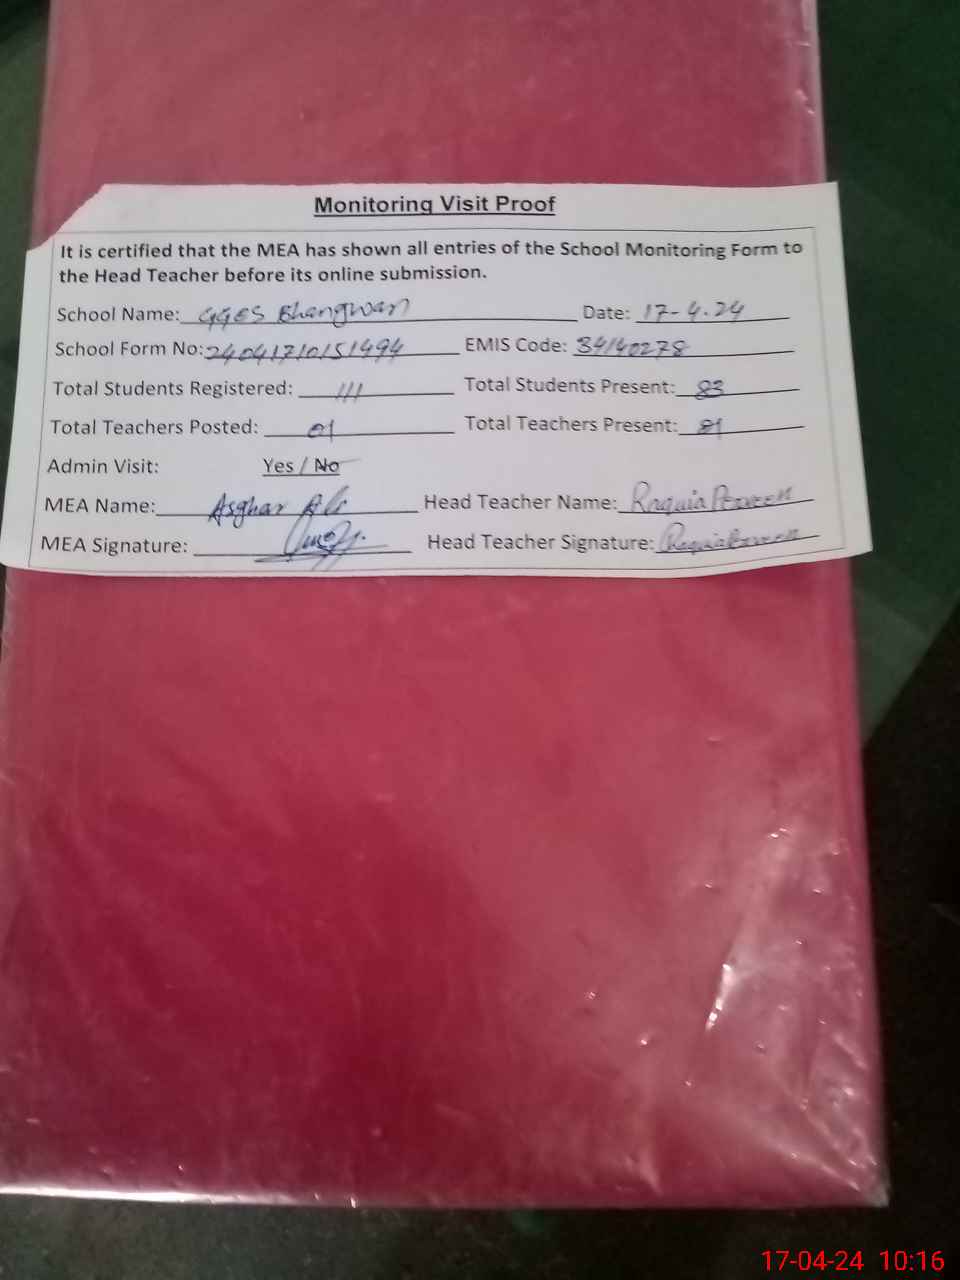 Monitoring Visit Proof
It is certified that the MEA has shown all entries of the School Monitoring Form to
the Head Teacher before its online submission.
School Name: GGES Bhangwan Date: 17-4.24
School Form No: 24041710151494 EMIS Code: 34140278
Total Students Registered: 111 Total Students Present: 83
Total Teachers Posted: 01 Total Teachers Present: 01
Admin Visit: Yes / No
MEA Name: Asghar Ali Head Teacher Name: Raquia Perveen
MEA Signature: Head Teacher Signature: Raquia Perveen
17-04-24 10:16